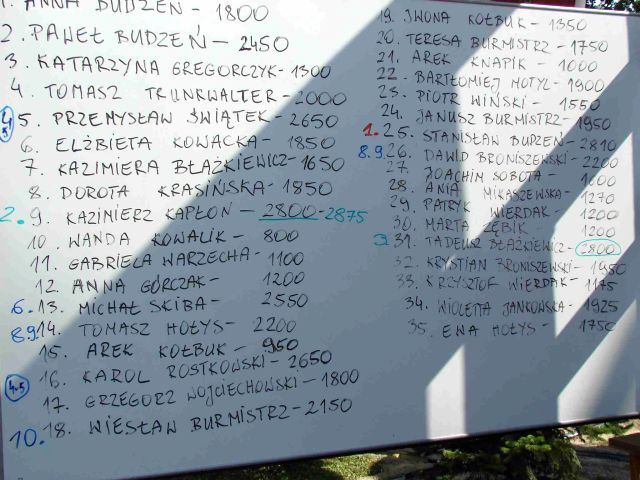 1. ANNA BUDZEŃ - 1800
2. PAWEŁ BUDZEŃ - 2450
3. KATARZYNA GREGORCZYK - 1300
4. TOMASZ TRUNKWALTER - 2000
4.5 5. PRZEMYSŁAW ŚWIĄTEK - 2650
6. ELŻBIETA KOWACKA - 1850
7. KAZIMIERA BŁAŻKIEWICZ - 1650
8. DOROTA KRASIŃSKA - 1850
2. 9. KAZIMIERZ KAPŁON - 2800 - 2875
10. WANDA KOWALIK - 800
11. GABRIELA WARZECHA - 1100
12. ANNA GÓRCZAK - 1200
6. 13. MICHAŁ SKIBA - 2550
8.9 14. TOMASZ HOŁYS - 2200
15. AREK KOŁBUK - 950
4.5 16. KAROL ROSTKOWSKI - 2650
17. GRZEGORZ WOJCIECHOWSKI - 1800
10. 18. WIESŁAW BURMISTRZ - 2150
19. IWONA KOŁBUK - 1350
20. TERESA BURMISTRZ - 1750
21. AREK KNAPIK - 1000
22. BARTŁOMIEJ HOTYL - 1900
23. PIOTR WIŃSKI - 1550
24. JANUSZ BURMISTRZ - 1950
1. 25. STANISŁAW BUDZEŃ - 2810
8.9 26. DAWID BRONISZEWSKI - 2200
27. JOACHIM SOBOTA - 1600
28. ANIA MIKASZEWSKA - 1270
29. PATRYK WIERDAK - 1200
30. MARTA ZĘBIK - 1200
3. 31. TADEUSZ BŁAŻKIEWICZ - 2800
32. KRYSTIAN BRONISZEWSKI - 1950
33. KRZYSZTOF WIERDAK - 1175
34. WIOLETTA JANKOWSKA - 1925
35. EWA HOŁYS - 1750